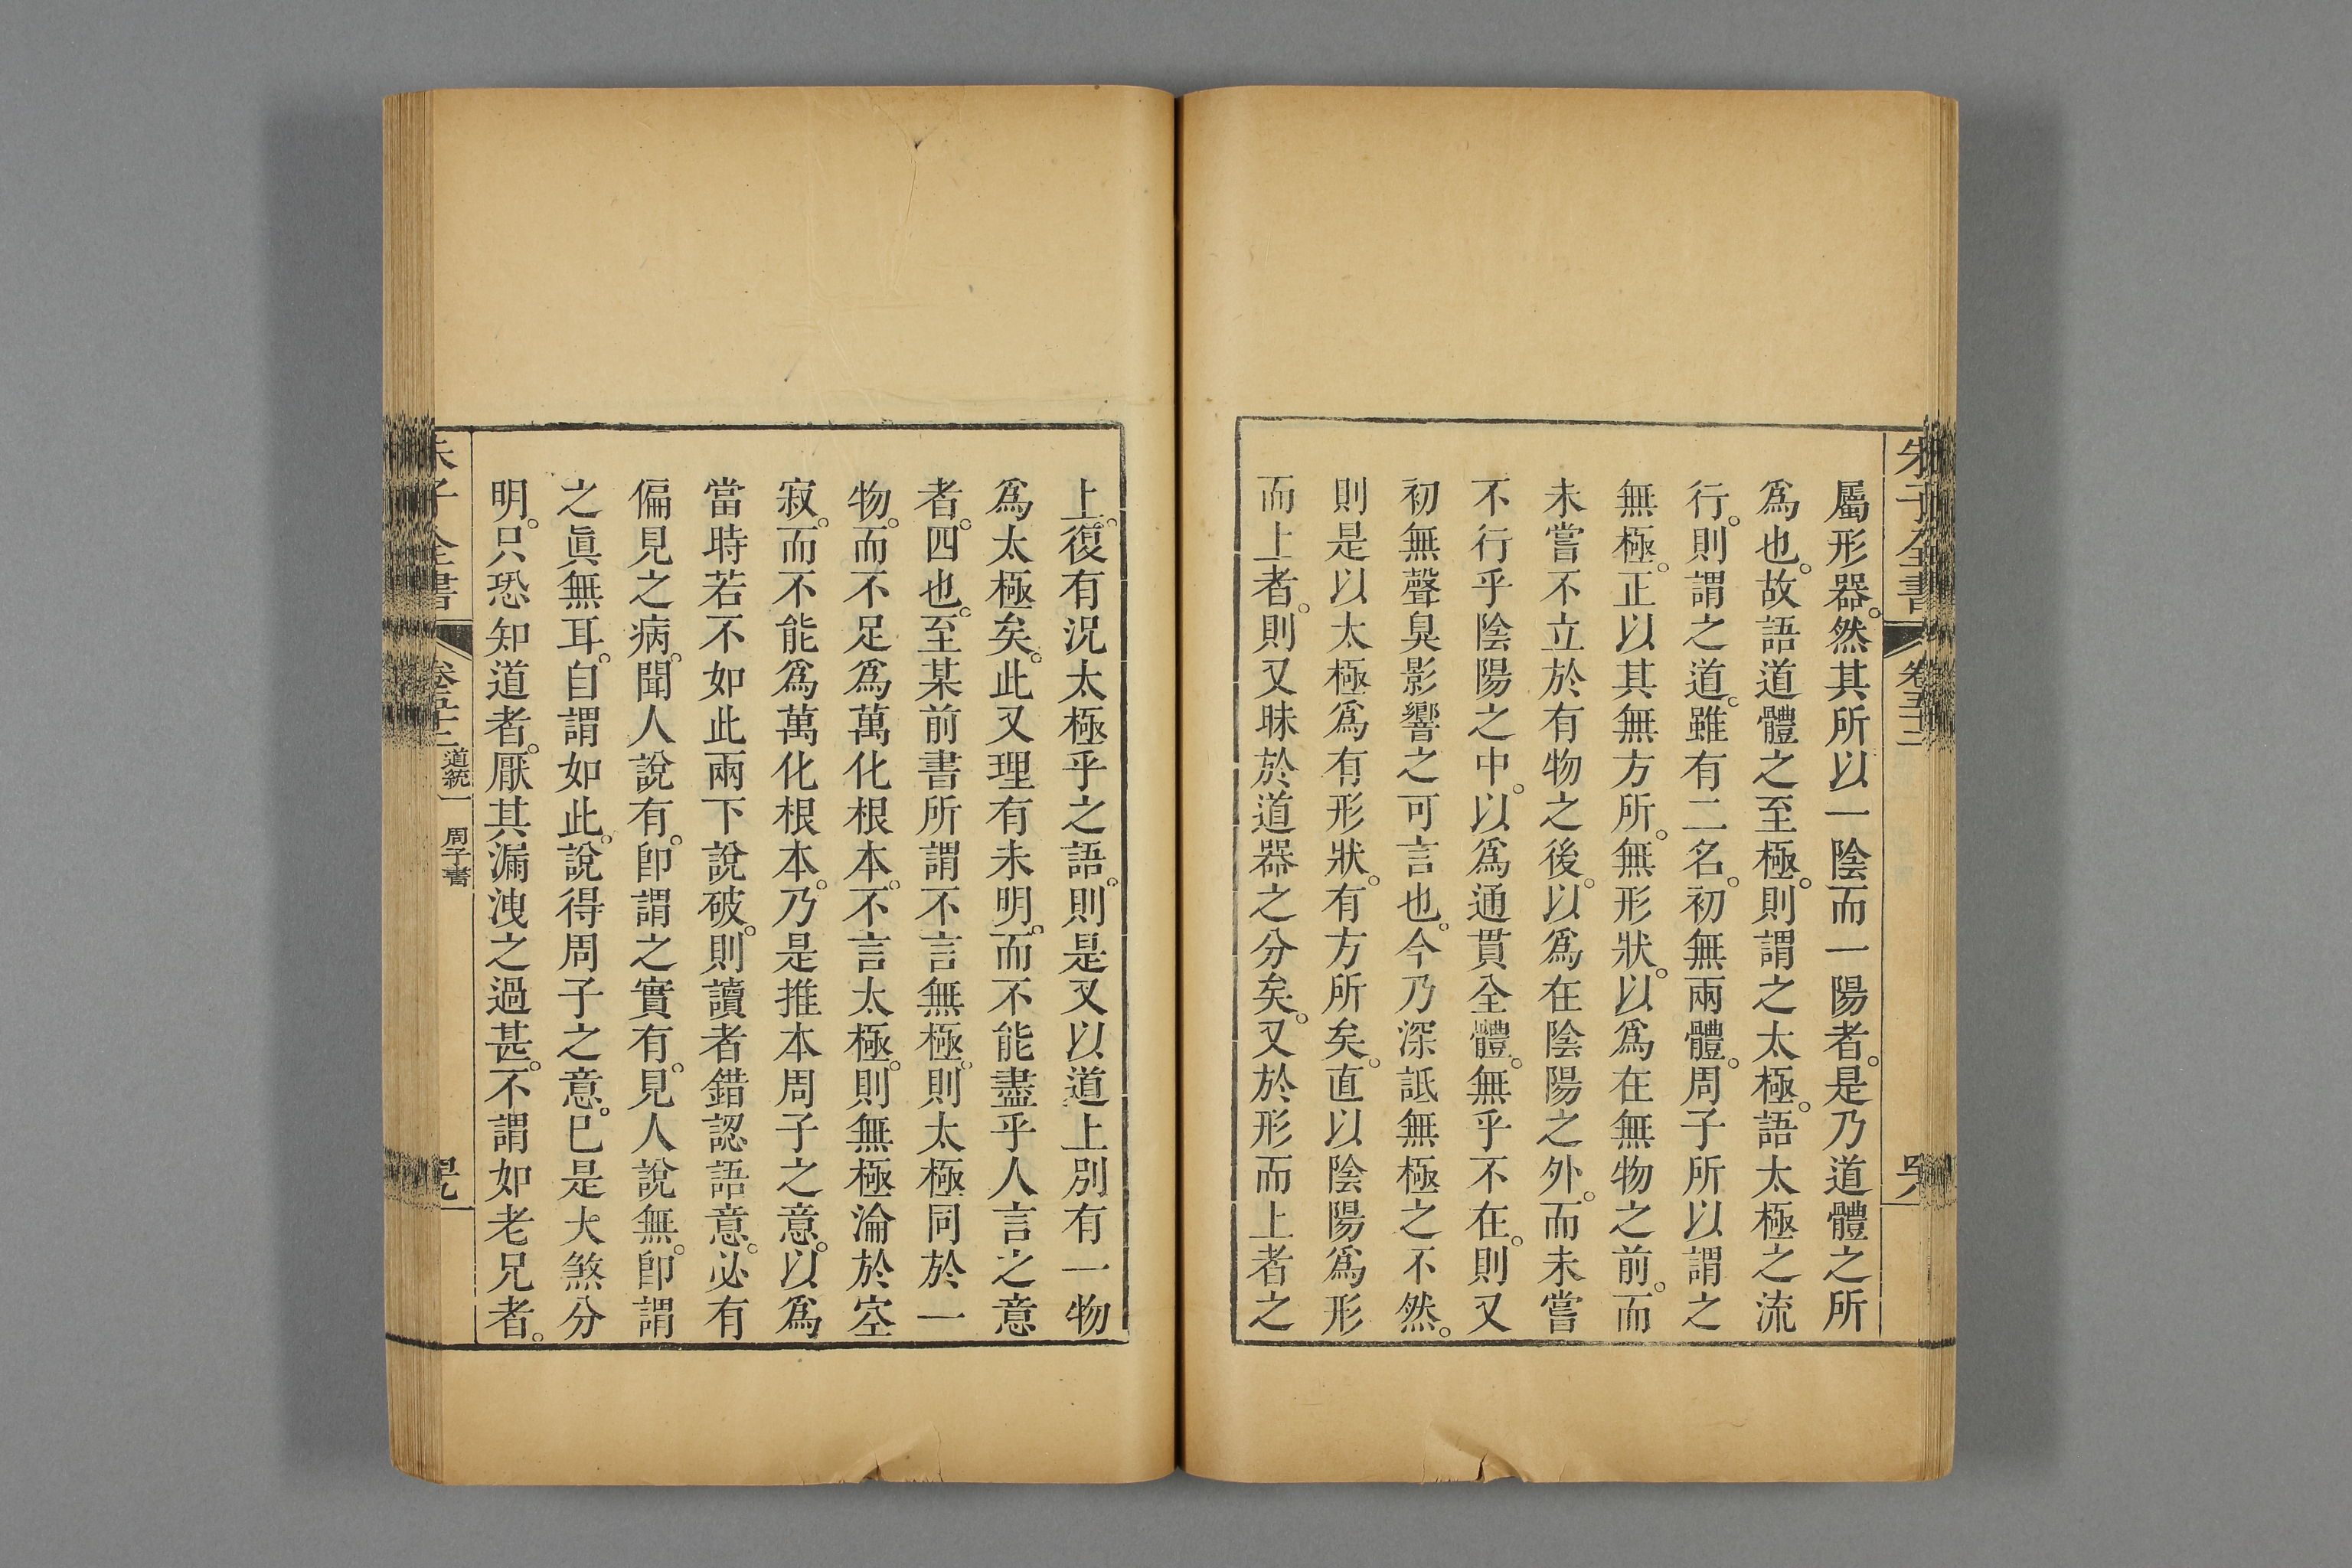 朱子全書
卷五十二
屬形器。然其所以一陰而一陽者。是乃道體之所
爲也。故語道體之至極。則謂之太極。語太極之流
行。則謂之道。雖有二名。初無兩體。周子所以謂之
無極。正以其無方所。無形狀。以爲在無物之前。而
未嘗不立於有物之後。以爲在陰陽之外。而未嘗
不行乎陰陽之中。以爲通貫全體。無乎不在。則又
初無聲臭影響之可言也。今乃深詆無極之不然。
則是以太極爲有形狀。有方所矣。直以陰陽爲形
而上者。則又昧於道器之分矣。又於形而上者之
上。復有況太極乎之語。則是又以道上別有一物
爲太極矣。此又理有未明。而不能盡乎人言之意
者。四也。至某前書所謂不言無極。則太極同於一
物。而不足爲萬化根本。不言太極。則無極淪於空
寂。而不能爲萬化根本。乃是推本周子之意。以爲
當時若不如此兩下說破。則讀者錯認語意。必有
偏見之病。聞人說有。卽謂之實有。見人說無。卽謂
之眞無耳。自謂如此。說得周子之意。已是大煞分
明。只恐知道者。厭其漏洩之過甚。不謂如老兄者。
朱子全書
卷五十二
道統一 周子書